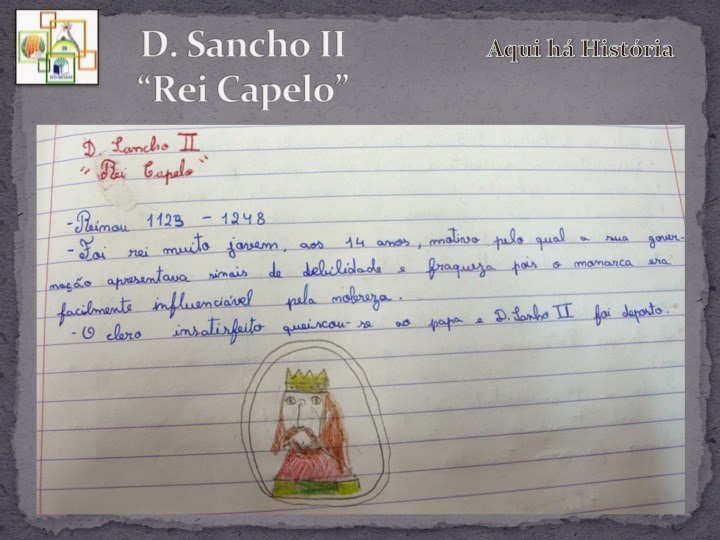 D. Sancho II
“Rei Capelo”
Aqui há História
D. Sancho II
" Rei Capelo "
- Reinou 1123 - 1248
- Foi rei muito jovem, aos 14 anos, motivo pelo qual a sua gover-
nação apresentava sinais de debilidade e fraqueza pois o monarca era
facilmente influenciável pela nobreza.
- O clero insatisfeito queiscou-se ao papa e D. Sanho II foi deposto.